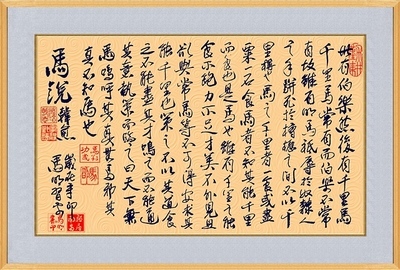 世有伯樂然後有千里馬
千里馬常有而伯樂不常
有故雖有名馬祇辱於奴隸人
之手駢死於槽櫪之間不以千
里稱也馬之千里者一食或盡
粟一石食馬者不知其能千里
而食也是馬也雖有千里之能
食不飽力不足才美不外見且
欲與常馬等不可得安求其
能千里也策之不以其道食
之不能盡其才鳴之而不能通
其意執策而臨之曰天下無
馬嗚呼其真無馬邪其
真不知馬也
馬說 韓愈
辛卯